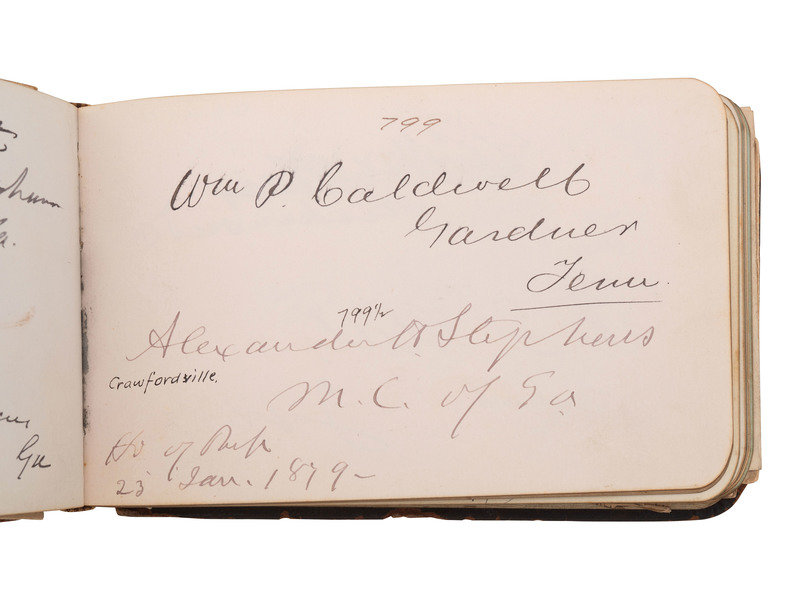 799
Wm P. Caldwell
Gardner
Tenn.
799½
Alexander H Stephens
Crawfordville,
M.C. of Ga
Ho of Reps
23 Jan. 1879-
Ga